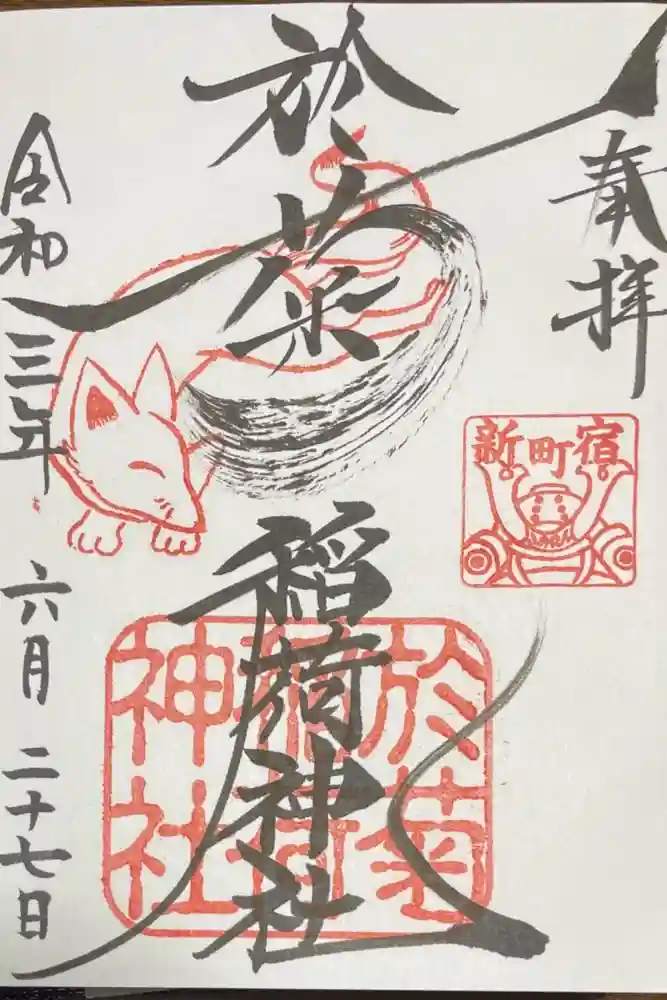 奉拝
新町宿
於菊
稲荷神社
於菊
稲荷
神社
令和三年六月二十七日